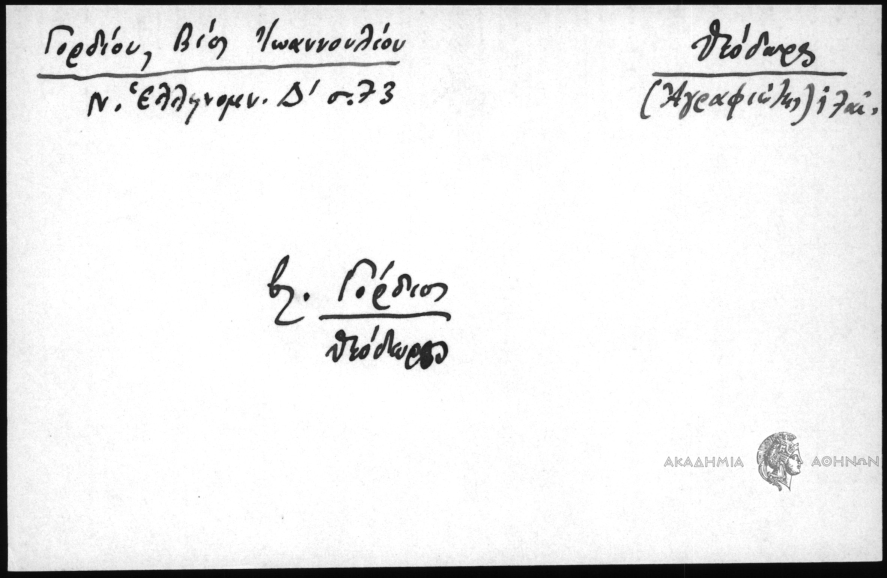 Γορδίου, Βίος Ἰωαννουλίου
Ν. Ἑλληνομν. Δ' σ. 73
Θεόδωρος
(Ἀγραφιώτης)
βλ. Γόρδιος
Θεόδωρος
ΑΚΑΔΗΜΙΑ ΑΘΗΝΩΝ